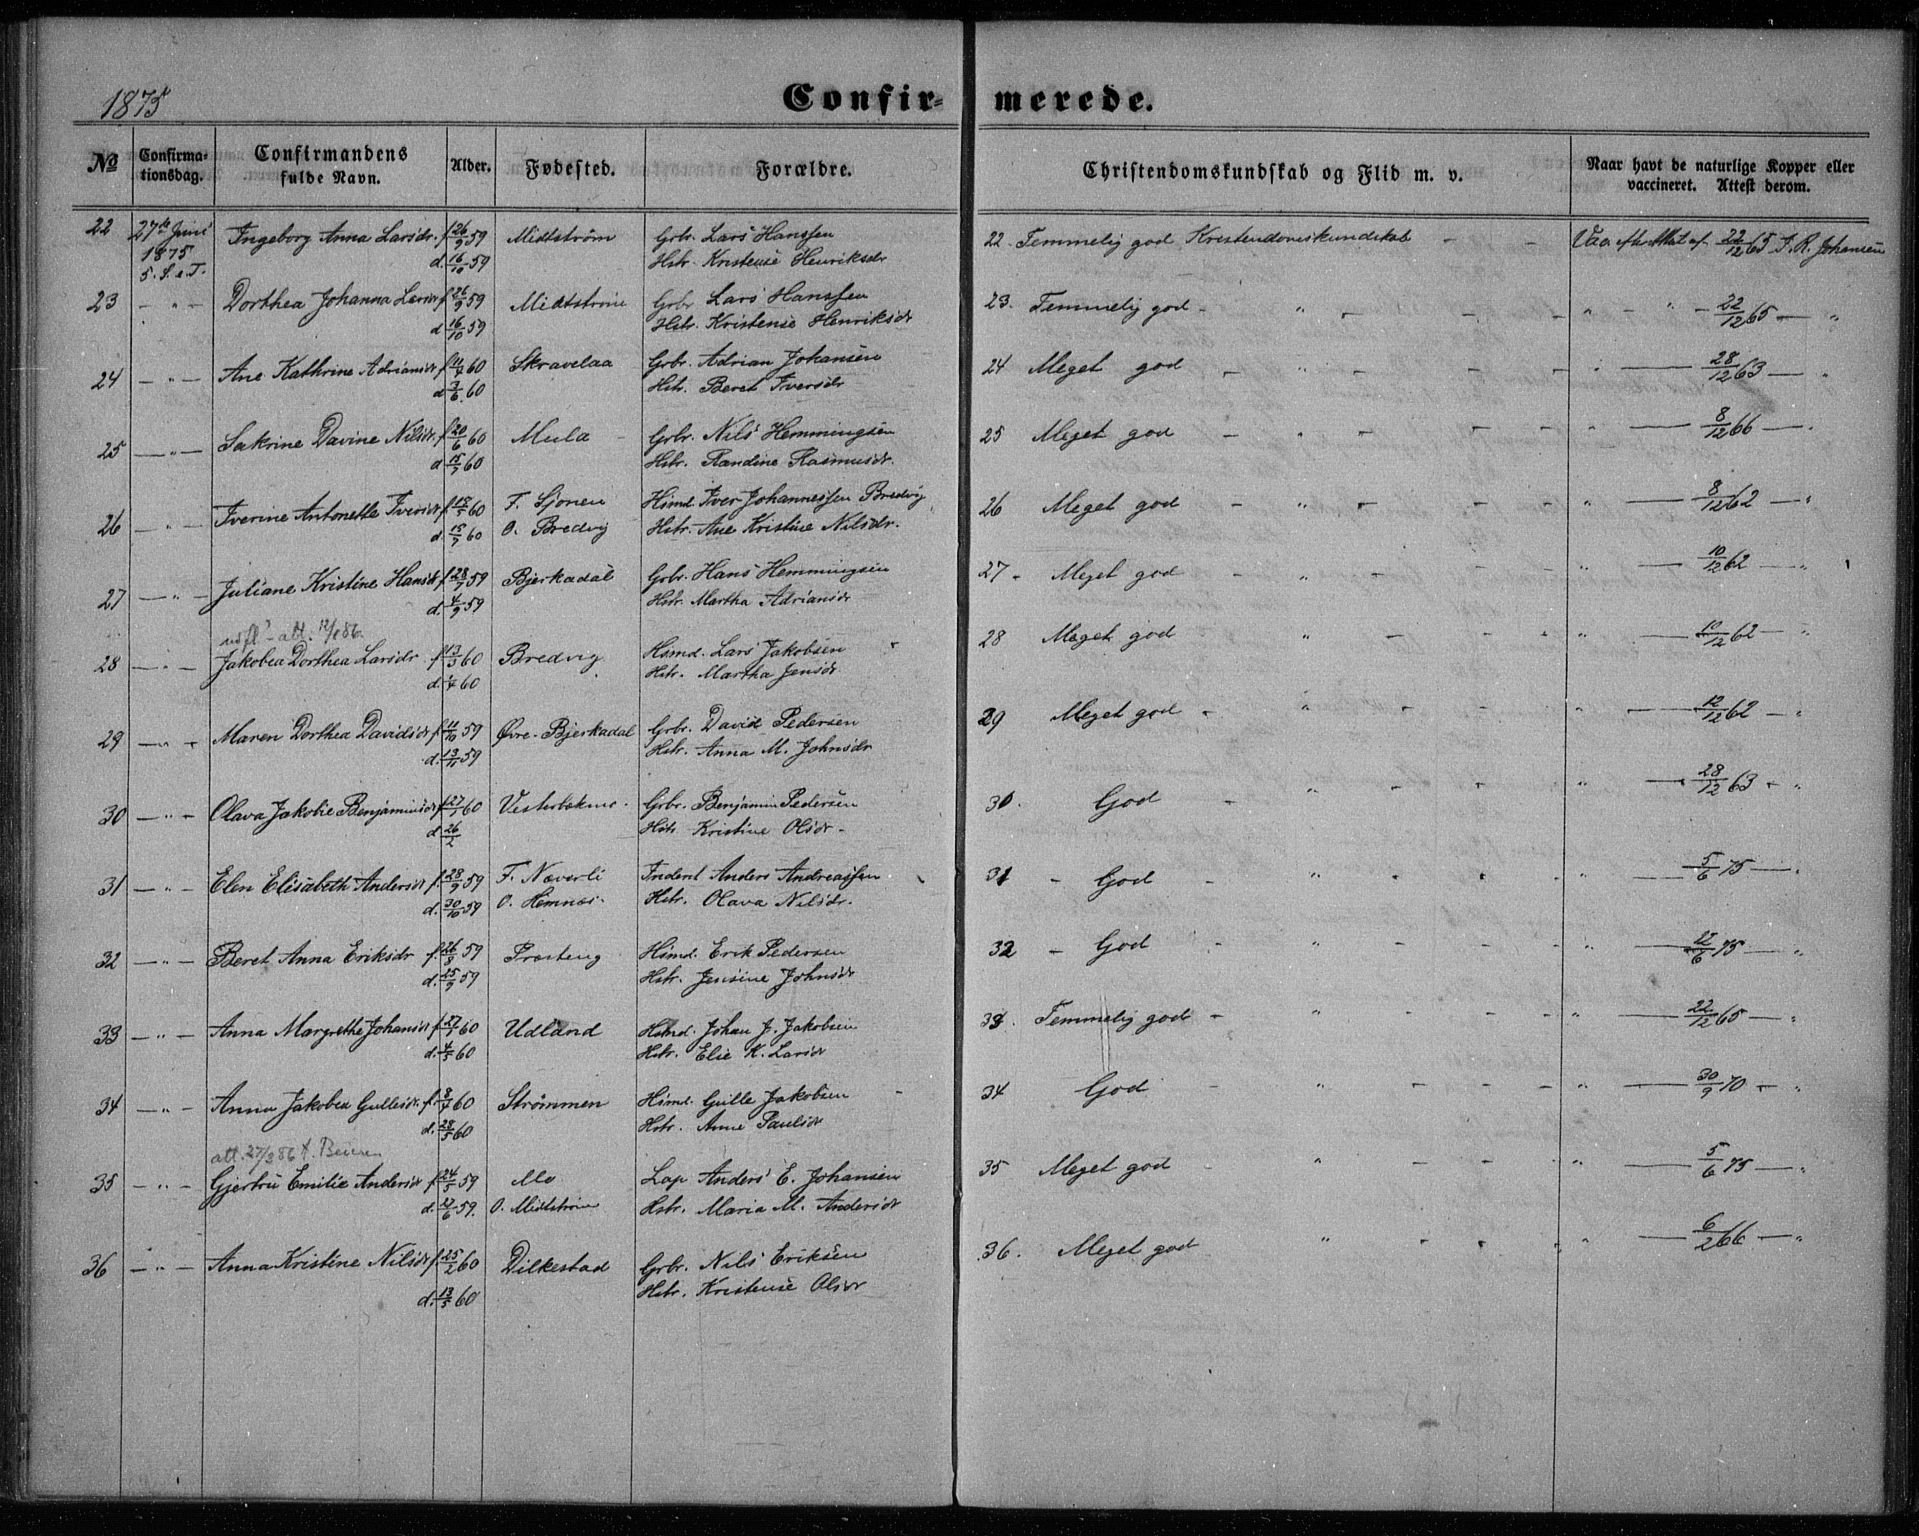 1875
Confirmerede.
No
Confirmationsdag.
Confirmandens fulde Navn.
Alder.
Fødested.
Forældre.
Christendomskundskab og Flid m. v.
Naar havt de naturlige Kopper eller vaccineret. Attest derom.
22 27de Juni Ingeborg Anna Larsdr. f. 26/9 59 Midtstrøm Grbr. Lars Hanssen 22. Temmelig god Kristendomskundskab - - Vaa. efter Attest af 22/12 65 J. R. Johansen
1875 d. 16/10 59 Hstr. Kristense Henriksdr
5. S. e. T.
23 - " - Dorthea Johanna Larsdr f. 26/9 59 Midtstrøm Grbr Lars Hanssen 23. Temmelig god - " - - - - " - " - 22/12 65 - "
d. 16/10 59 Hstr. Kristense Henriksdr
24 - " - Ane Kathrine Adriansdr f. 11/4 60 Skravelaa Grbr. Adrian Johansen 24 Meget god - " - - - - " - 28/12 63 - "
d. 3/6 60 Hstr. Beret Iversdr
25 - " - Sakrine Davine Nilsdr. f. 20/6 60 Mula - Grbr. Nils Hemmingsen 25 Meget god - " - - - - " - 8/12 66 - "
d. 15/7 60 Hstr. Randine Rasmusdr.
26 - " - Iverine Antonette Iversdr f. 18/5 60 F. Sjonen Hsmd. Iver Johannessen Bredvig 26 Meget god - " - - - - " - 8/12 62 - "
d. 15/7 60 O. Bredvig Hstr. Ane Kristine Nilsdr.
27 - " - Juliane Kristine Hansdr f. 28/7 59 Bjerkadal Grbr. Hans Hemmingsen 27 - Meget god - " - - - - " - 10/12 62 - "
d. 4/9 59 Hstr. Martha Adriansdr
udfl? - att. 12/1 86.
28 - " - Jakobea Dorthea Larsdr f. 13/3 60 Bredvig Hsmd. Lars Jakobsen 28 Meget god " - - - - " - 10/12 62 - "
d. 1/4 60 Hstr. Martha Jensdr
29 - " - Maren Dorthea Davidsdr f. 11/10 59 Øvre-Bjerkadal Grbr. David Pedersen 29 Meget god - " - - - - " - 12/12 62 - "
d. 13/11 59 Hstr. Anna M. Johnsdr
30 - " - Olava Jakobie Benjaminsdr f. 27/1 60 Vesterbekmo - Grbr. Benjamin Pedersen 30. God - " - - - - " - 28/12 63 - "
d. 26/2 Hstr Kristine Olsdr -
31 - " - Elen Elisabeth Andersdr f. 28/9 59 F. Næverli Inderst Anders Andreassen 31 - God - " - - - - " - 5/6 75 - "
d. 30/10 59 O. Hemnæs - Hstr. Olava Nilsdr.
32 - " - Beret Anna Eriksdr f. 26/8 59 Præsteng Hsmd. Erik Pedersen 32 - God - " - - - - " - 12/6 75 - "
d. 15/9 59 Hstr. Jensine Johnsdr
33 - " - Anna Margrethe Johansdr f. 27/1 60 Udland Hsmd. Johan J. Jakobsen 33. Temmelig god - " - - - - " - 22/12 65 - "
d. 4/5 60 Hstr. Elie K. Larsdr
34 - " - Anna Jakobea Gullesdr. f. 8/4 60 Strømmen Hsmd. Gulle Jakobsen 34 God - " - - - - " - 30/9 70 - "
d. 28/5 60 Hstr. Anne Paulsdr
att. 27/3 86 t. Beieren
35 - " - Gjertru Emilie Andersdr f. 24/5 59 Mo Lap Anders E. Johansen 35 Meget god - " - - - - " - 5/6 75 - "
d. 27/6 59. O. Midtstrøm Hstr. Maria M. Andersdr
36 - " - Anna Kristine Nilsdr f. 25/2 60 Dilkestad Grbr. Nils Eriksen 36. Meget god " - - - - " - 6/2 66 - "
d. 13/5 60 Hstr. Kristense Olsdr